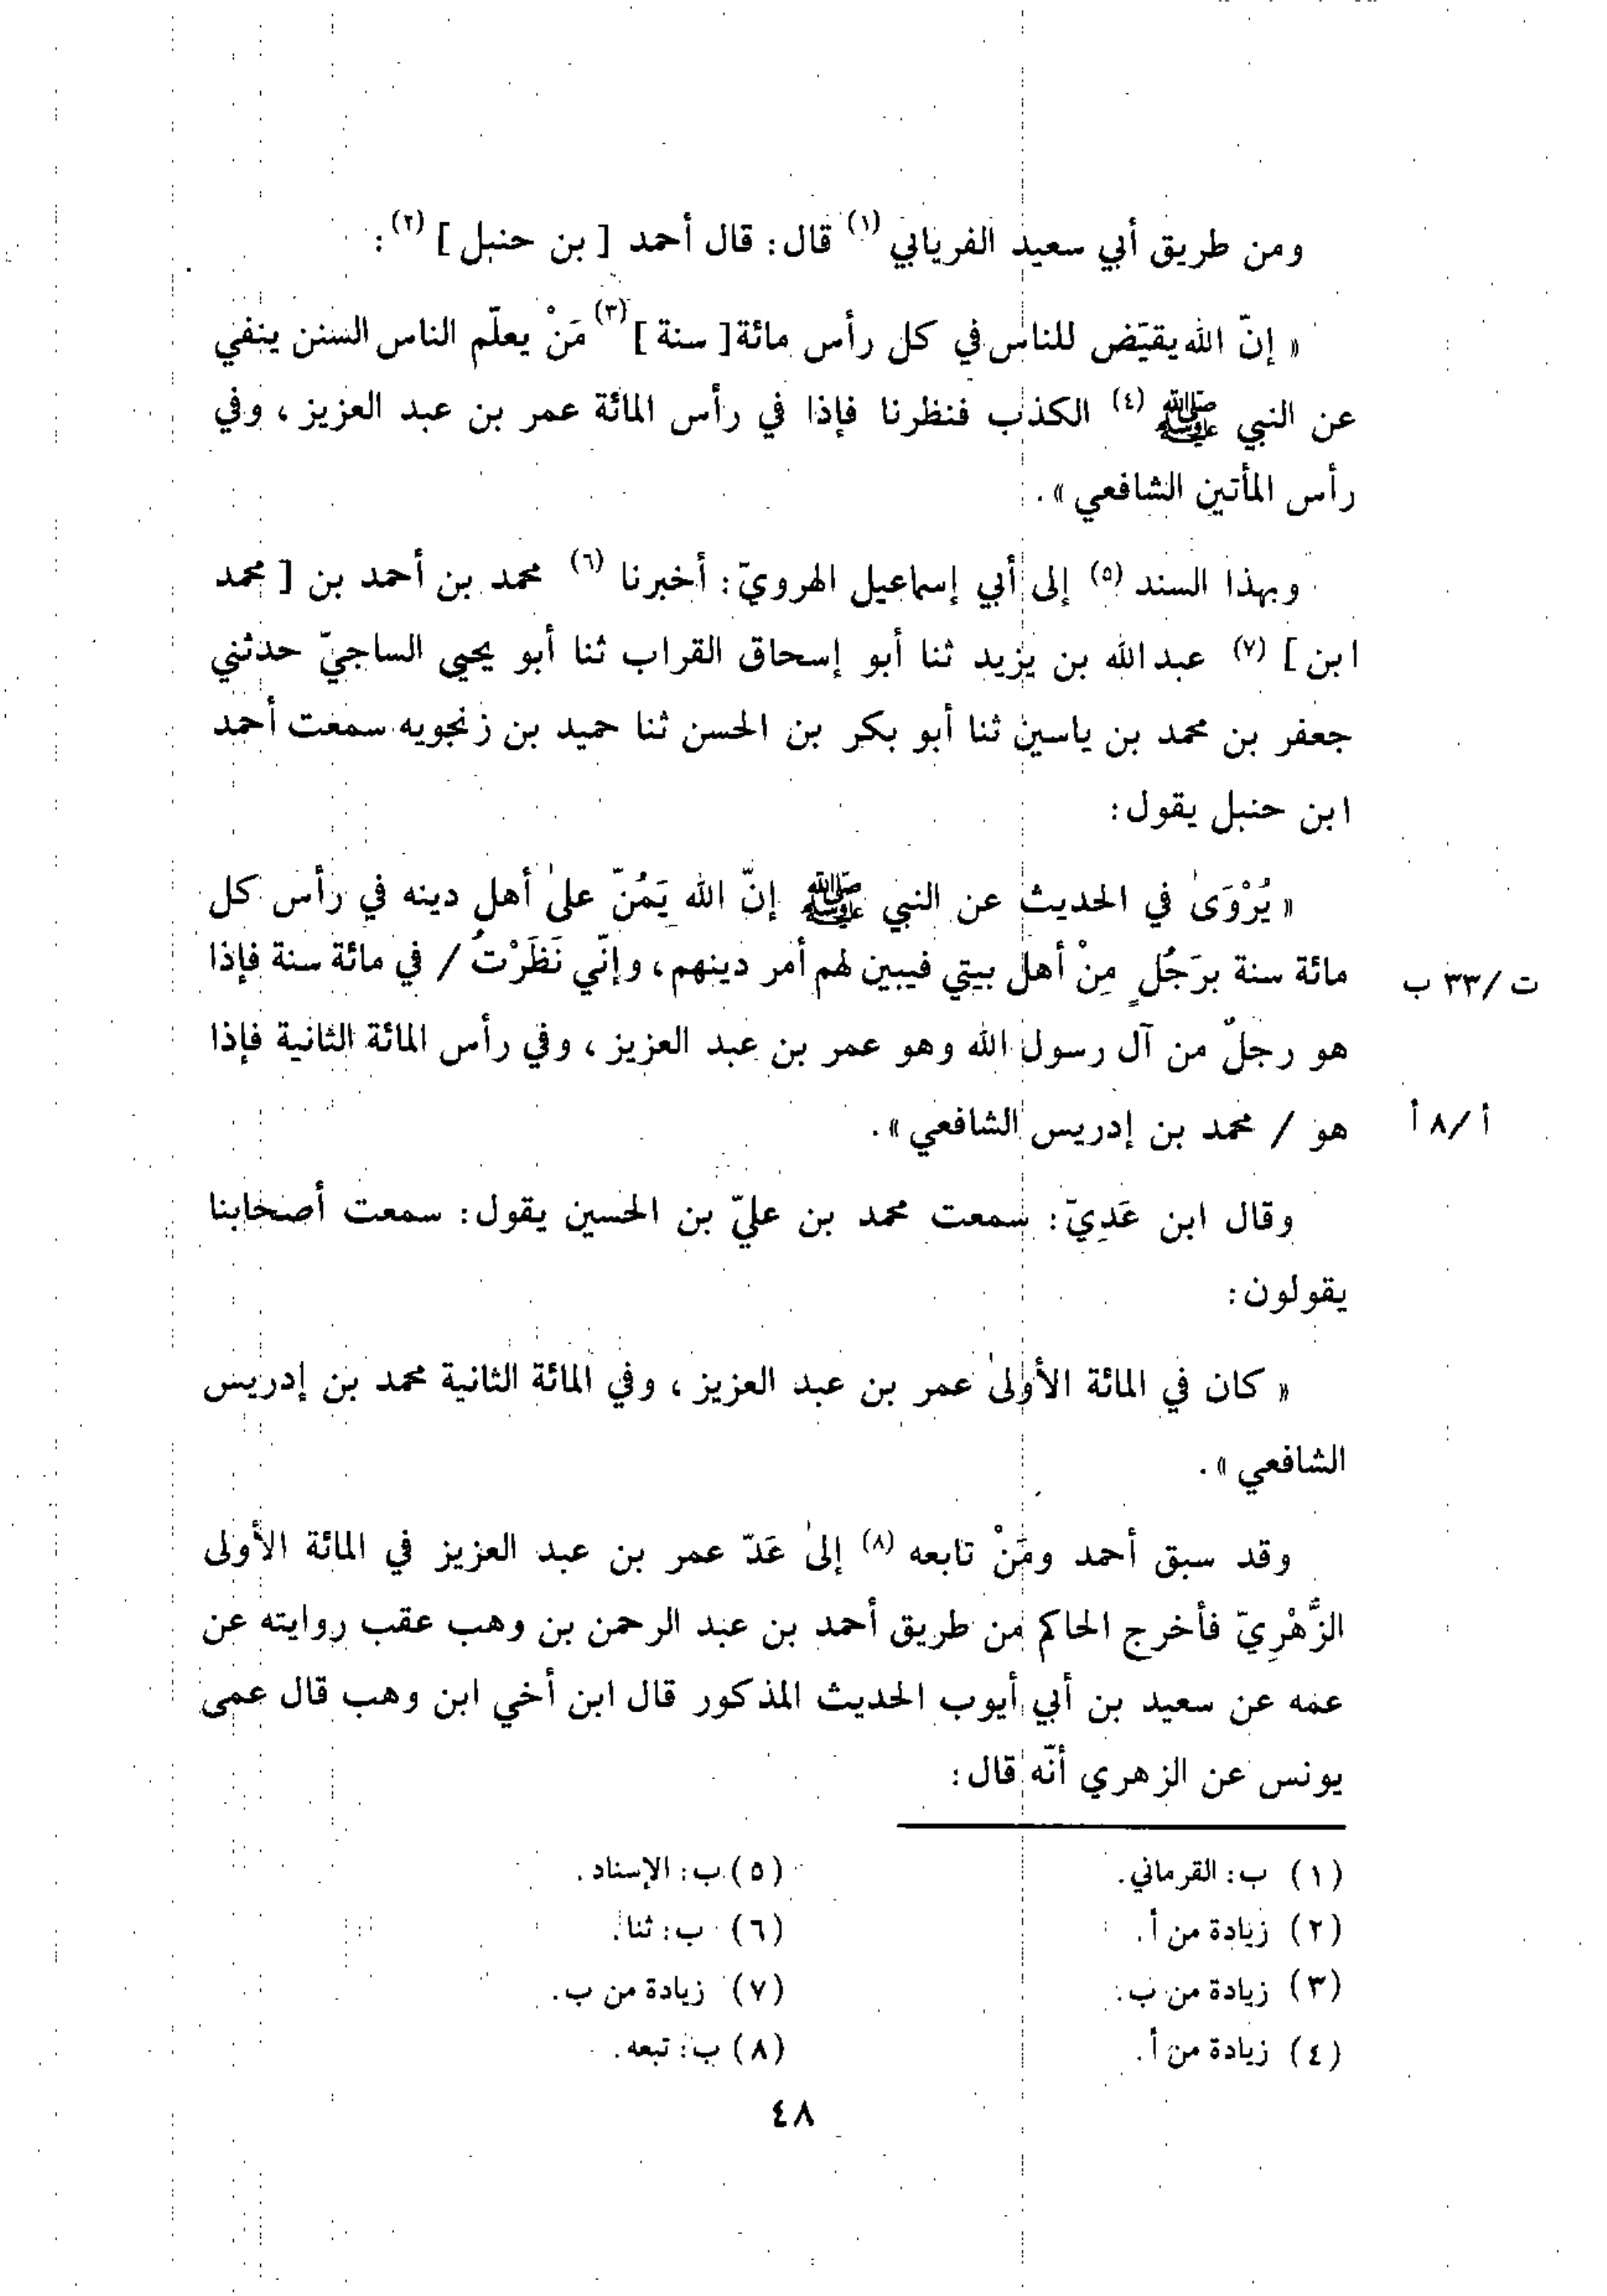 ومن طريق أبي سعيد الفريابي (١) قال: قال أحمد [ بن حنبل ] (٢) :
« إنّ الله يقيّض للناس في كل رأس مائة [ سنة ] (٣) مَنْ يعلّم الناس السنن ينفي
عن النبي ﷺ (٤) الكذب فنظرنا فإذا في رأس المائة عمر بن عبد العزيز ، وفي
رأس المأتين الشافعي » .
وبهذا السند (٥) إلى أبي إسماعيل الهرويّ : أخبرنا (٦) محمد بن أحمد بن [ محمد
ابن ] (٧) عبد الله بن يزيد ثنا أبو إسحاق القراب ثنا أبو يحيى الساجيّ حدثني
جعفر بن محمد بن ياسين ثنا أبو بكر بن الحسن ثنا حميد بن زنجويه سمعت أحمد
ابن حنبل يقول :
« يُرْوَىٰ في الحديث عن النبي ﷺ إنّ الله يَمُنّ علىٰ أهل دينه في رأس كل
مائة سنة برَجُلٍ مِنْ أهل بيتي فيبين لهم أمر دينهم ، وإنّي نَظَرْتُ / في مائة سنة فإذا
ت / ٣٣ ب
هو رجلٌ من آل رسول الله وهو عمر بن عبد العزيز ، وفي رأس المائة الثانية فإذا
هو / محمد بن إدريس الشافعي » .
أ / ٨ أ
وقال ابن عَدِيّ : سمعت محمد بن عليّ بن الحسين يقول : سمعت أصحابنا
يقولون :
« كان في المائة الأولىٰ عمر بن عبد العزيز ، وفي المائة الثانية محمد بن إدريس
الشافعي » .
وقد سبق أحمد ومَنْ تابعه (٨) إلىٰ عَدّ عمر بن عبد العزيز في المائة الأولى
الزُّهْرِيّ فأخرج الحاكم من طريق أحمد بن عبد الرحمن بن وهب عقب روايته عن
عمه عن سعيد بن أبي أيوب الحديث المذكور قال ابن أخي ابن وهب قال عمى
يونس عن الزهري أنّه قال :
(١) ب : القرماني .
(٢) زيادة من أ .
(٣) زيادة من ب .
(٤) زيادة من أ .
(٥) ب : الإسناد .
(٦) ب : ثنا .
(٧) زيادة من ب .
(٨) ب : تبعه .
٤٨